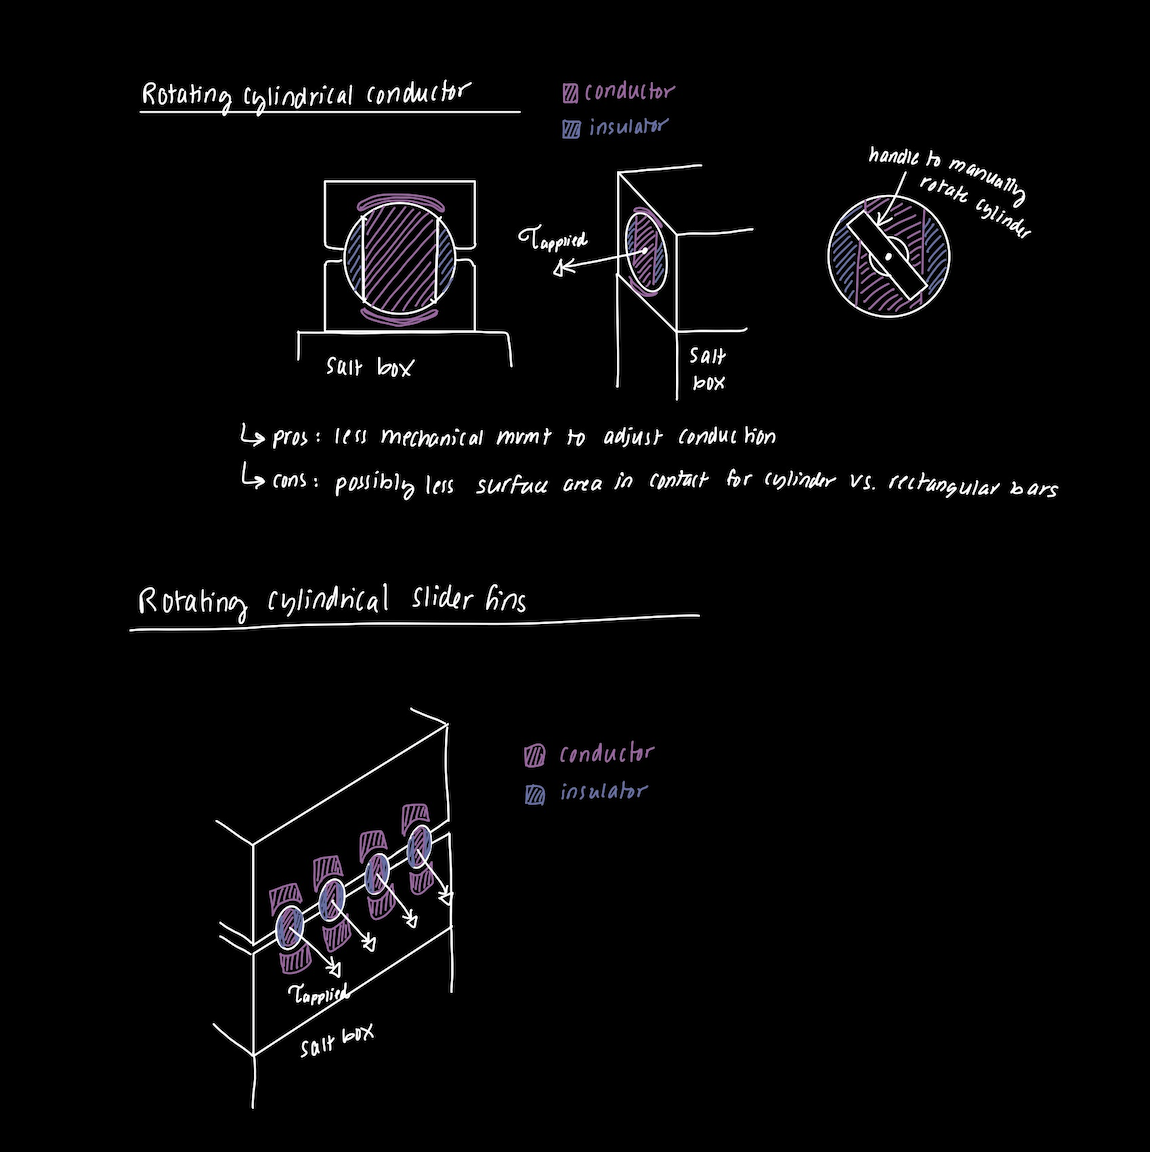 Rotating cylindrical conductor
conductor
insulator
handle to manually
rotate cylinder
τapplied
salt box
salt
box
↳ pros: less mechanical mvmt to adjust conduction
↳ cons: possibly less surface area in contact for cylinder vs. rectangular bars
Rotating cylindrical slider fins
conductor
insulator
τapplied
salt box